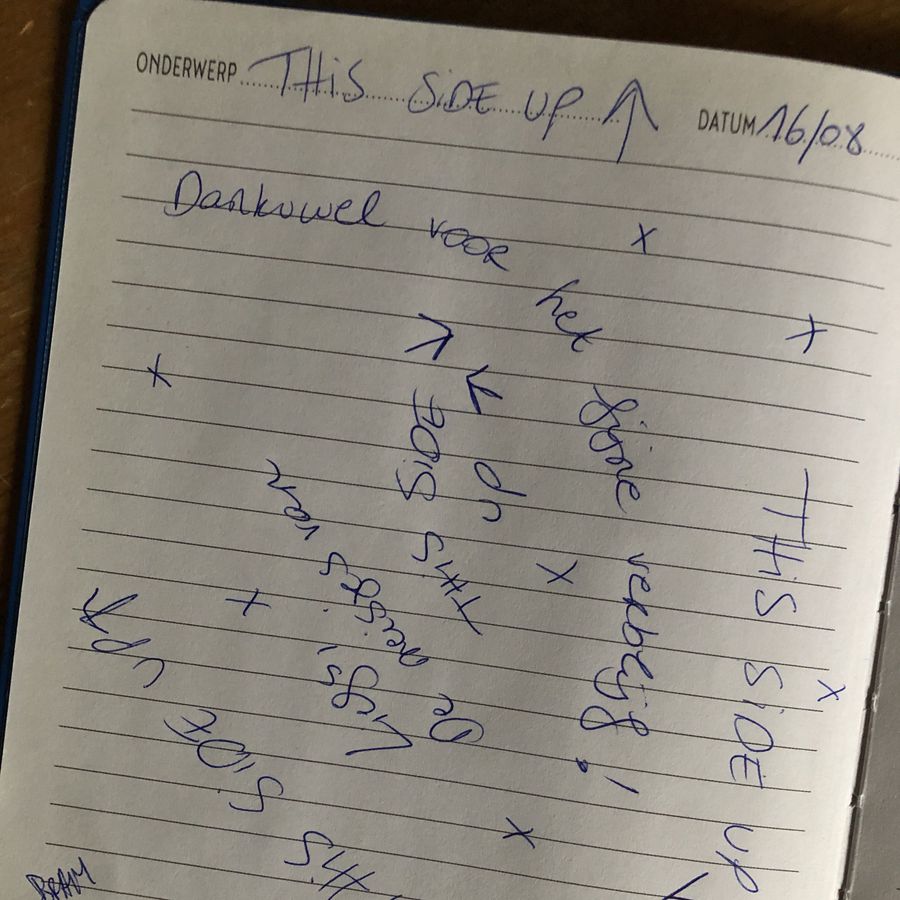 ONDERWERP THiS SiDE UP ↑ DATUM 16/08
Dankuwel voor het fijne verblijf!
THiS SiDE UP
THiS SiDE UP
De meisjes van
THiS SiDE UP
BRAM